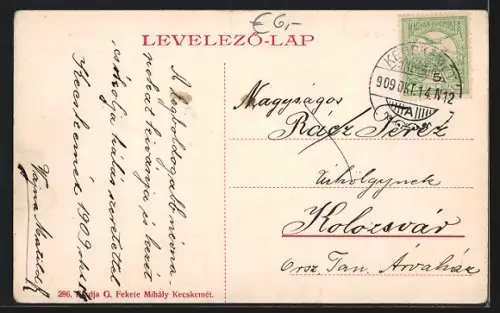 € 6,-
LEVELEZŐ-LAP
MAGYAR KIR. POSTA
KECSKEMÉT
909 OKT. 14 N12
A
A legboldogabb névna-
pokat kivánja és kezeit
csókolja hálás szeretettel
Kecskemét 1909 okt. 14
Vajna Matild
Nagyságos
Rácz Teréz
Úrhölgynek
Kolozsvár
Orsz. Tan. Árvaház
286. Kiadja G. Fekete Mihály Kecskemét.